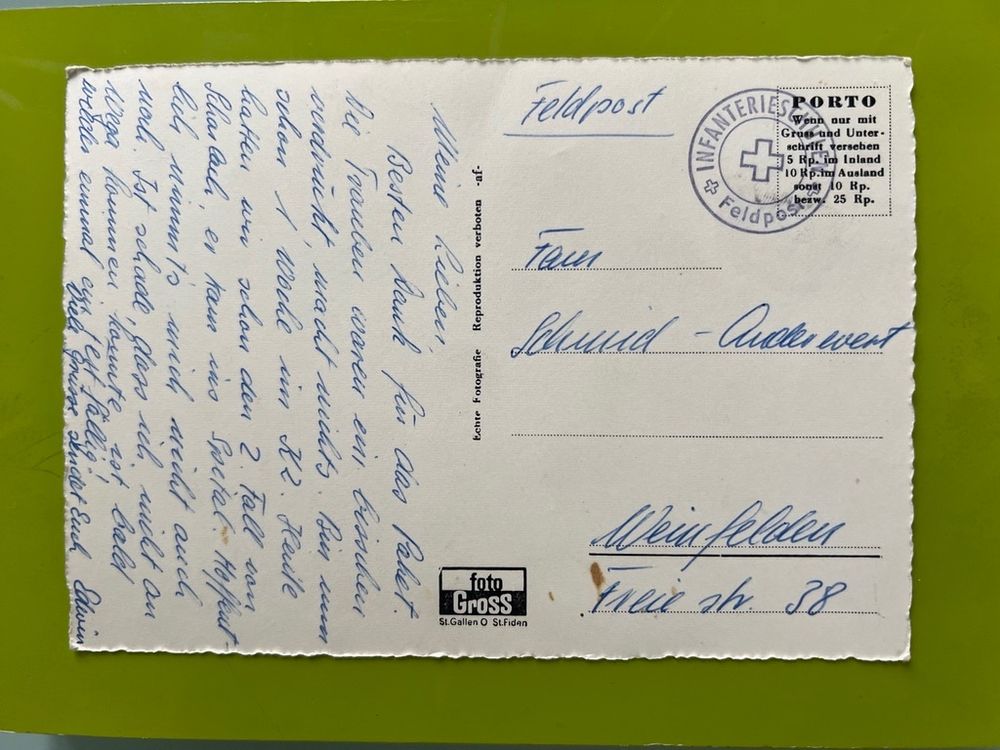 Meine Lieben,
Besten Dank für das Paket.
Die Trauben waren ein bisschen
verdrückt, macht nichts. Bin nun
schon 1 Woche im KZ. Heute
hatten wir schon den 2. Fall von
Scharlach, er kam ins Spital. Hoffent-
lich nimmts mich nicht auch
noch. Ist schade, dass ich nicht an
kommen konnte, ist bald
wieder einmal ein fällig!
Viele Grüsse sendet Euch Edwin
Echte Fotografie Reproduktion verboten -af-
foto
Gross
St.Gallen O St.Fiden
Feldpost
INFANTERIESCHULEN
Feldpost
PORTO
Wenn nur mit
Gruss und Unter-
schrift versehen
5 Rp. im Inland
10 Rp. im Ausland
sonst 10 Rp.
bezw. 25 Rp.
Fam
Schmid - Anderwert
Weinfelden
Freie str. 38